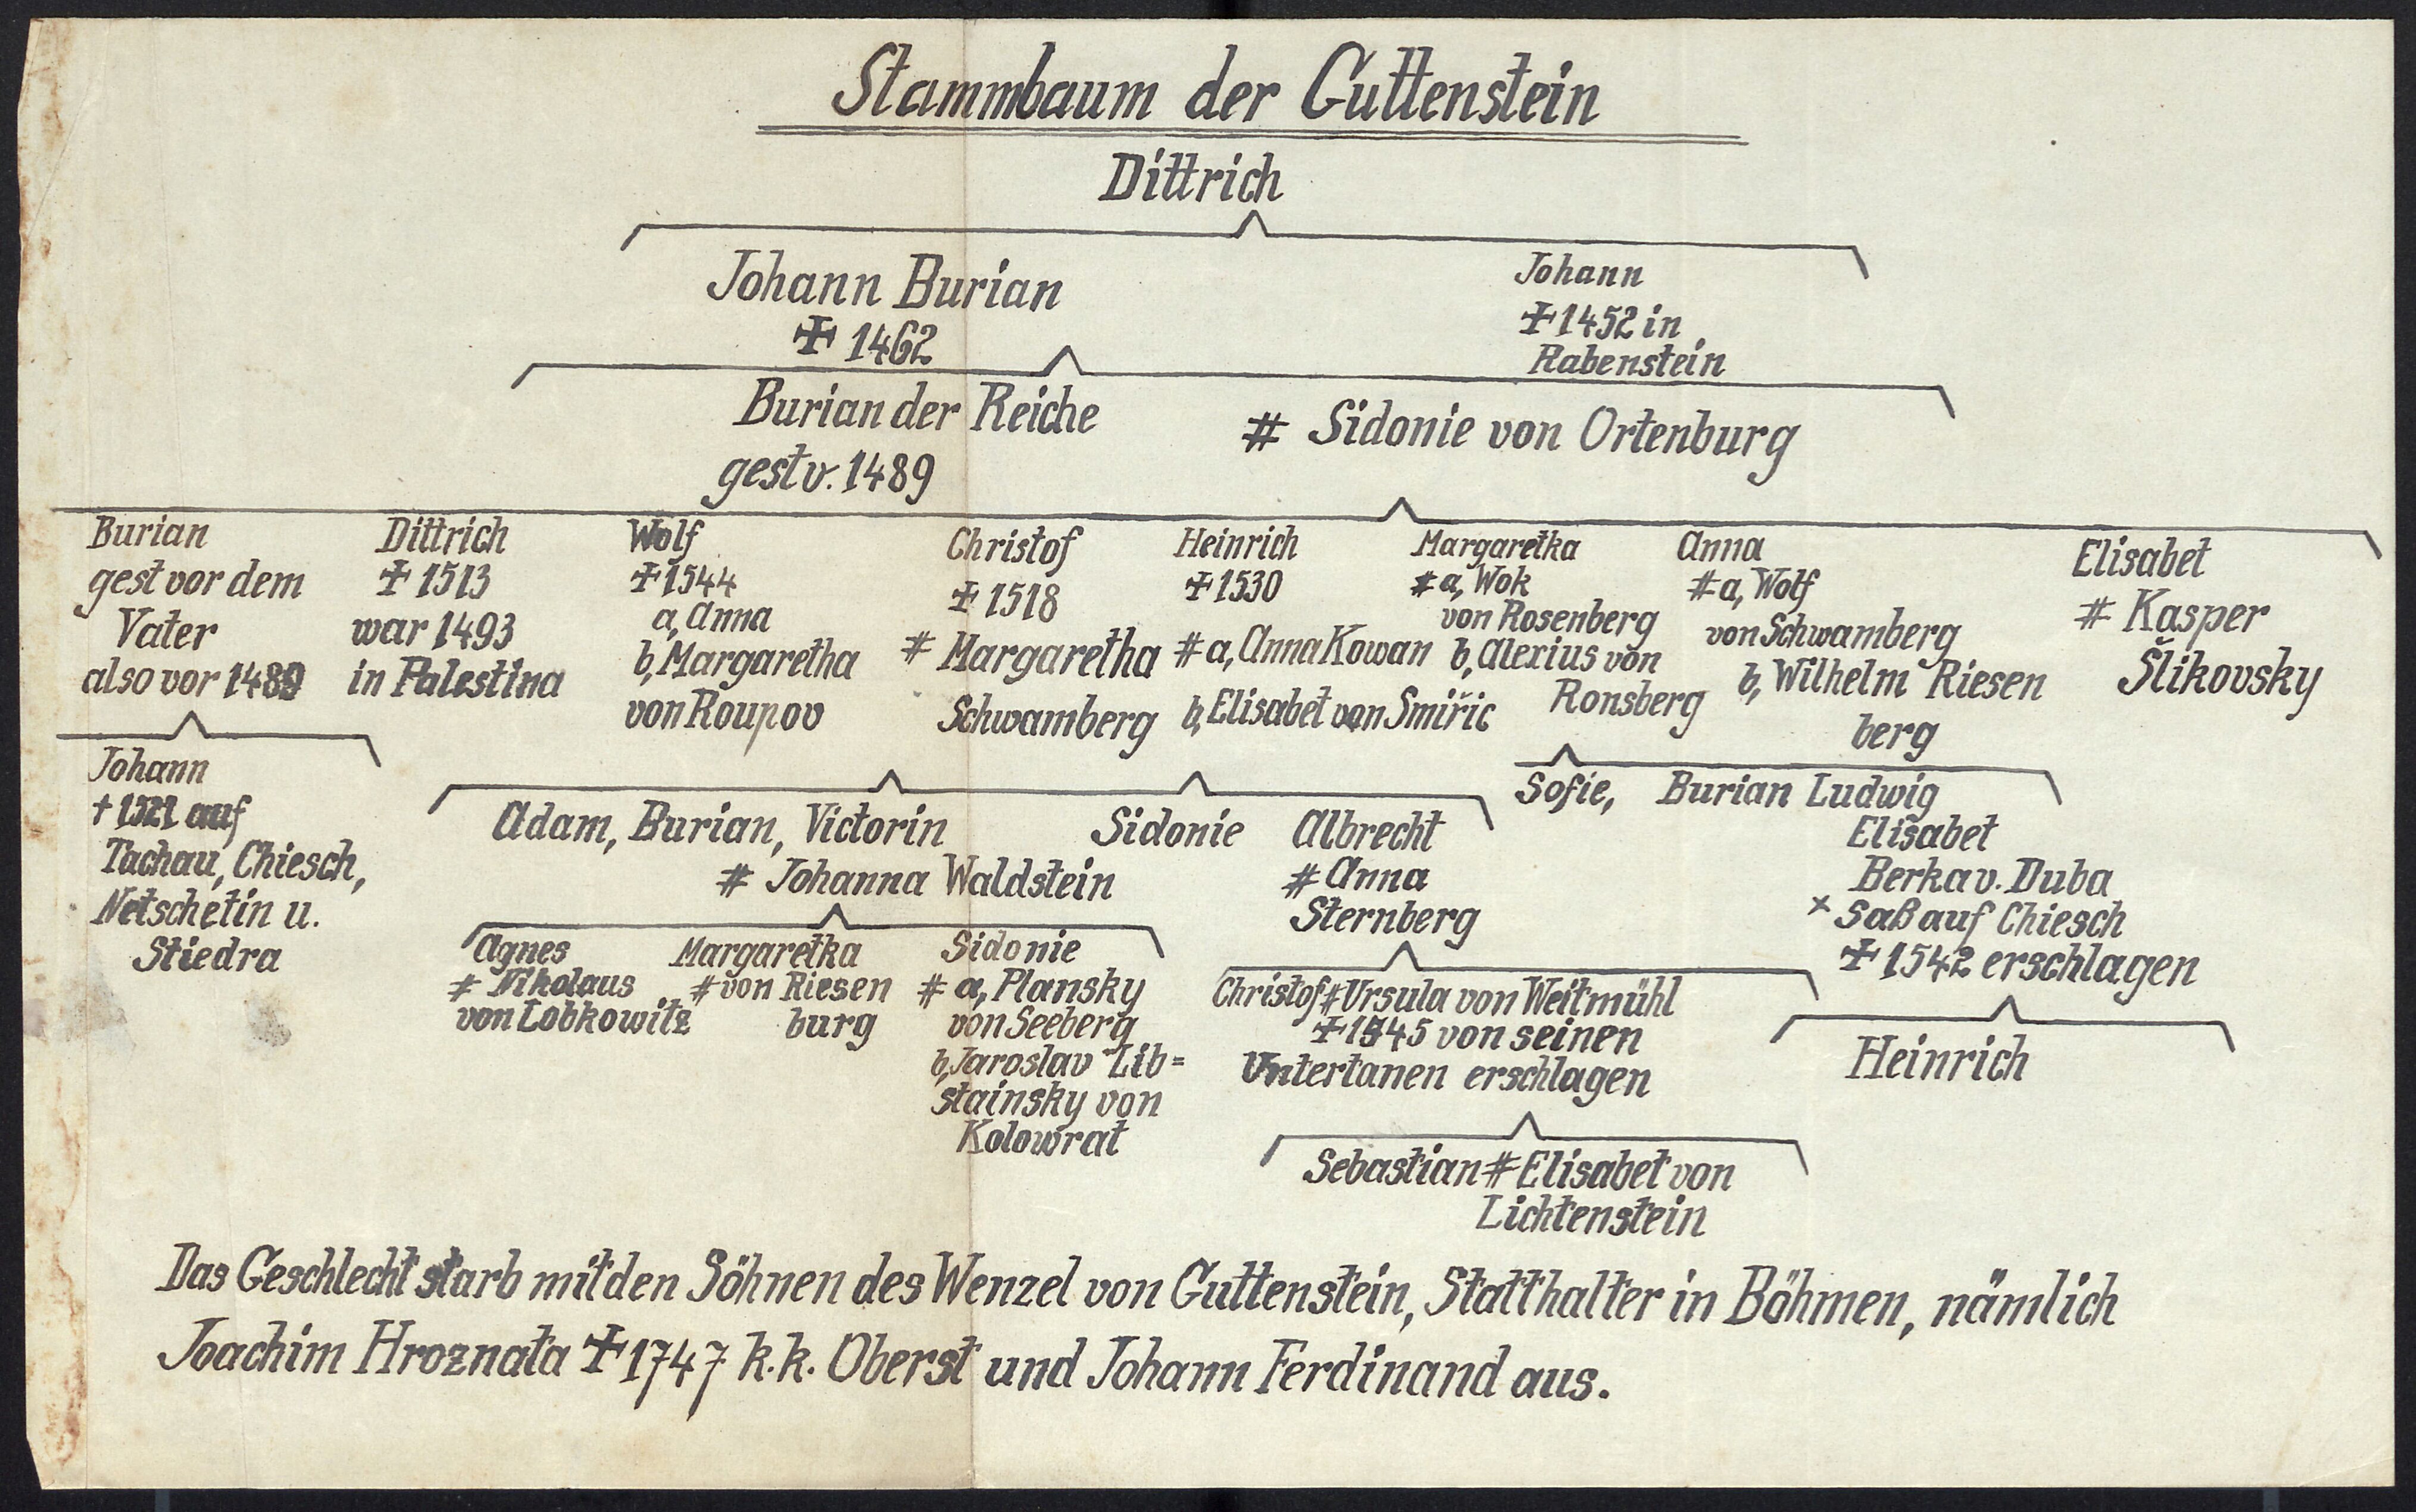 Stammbaum der Guttenstein
Dittrich
Johann Burian
✝ 1462
Johann
✝ 1452 in
Rabenstein
Burian der Reiche
gest v. 1489
# Sidonie von Ortenburg
Burian
gest vor dem
Vater
also vor 1489
Dittrich
✝ 1513
war 1493
in Palestina
Wolf
✝ 1544
a, Anna
b, Margaretha
von Roupov
Christof
✝ 1518
# Margaretha
Schwamberg
Heinrich
✝ 1530
# a, Anna Kowan
b, Elisabet von Smiřic
Margaretka
# a, Wok
von Rosenberg
b, Alexius von
Ronsberg
Anna
# a, Wolf
von Schwamberg
b, Wilhelm Riesen
berg
Elisabet
# Kasper
Šlikovsky
Johann
† 1521 auf
Tachau, Chiesch,
Netschetin u.
Stiedra
Adam, Burian, Victorin
# Johanna Waldstein
Sidonie
Albrecht
# Anna
Sternberg
Sofie, Burian Ludwig
Elisabet
Berka v. Duba
× Saß auf Chiesch
✝ 1542 erschlagen
Agnes
# Nikolaus
von Lobkowitz
Margaretka
# von Riesen
burg
Sidonie
# a, Plansky
von Seeberg
b, Jaroslav Lib=
stainsky von
Kolowrat
Christof # Ursula von Weitmühl
✝ 1545 von seinen
Untertanen erschlagen
Heinrich
Sebastian # Elisabet von
Lichtenstein
Das Geschlecht starb mit den Söhnen des Wenzel von Guttenstein, Statthalter in Böhmen, nämlich
Joachim Hroznata ✝ 1747 k.k. Oberst und Johann Ferdinand aus.